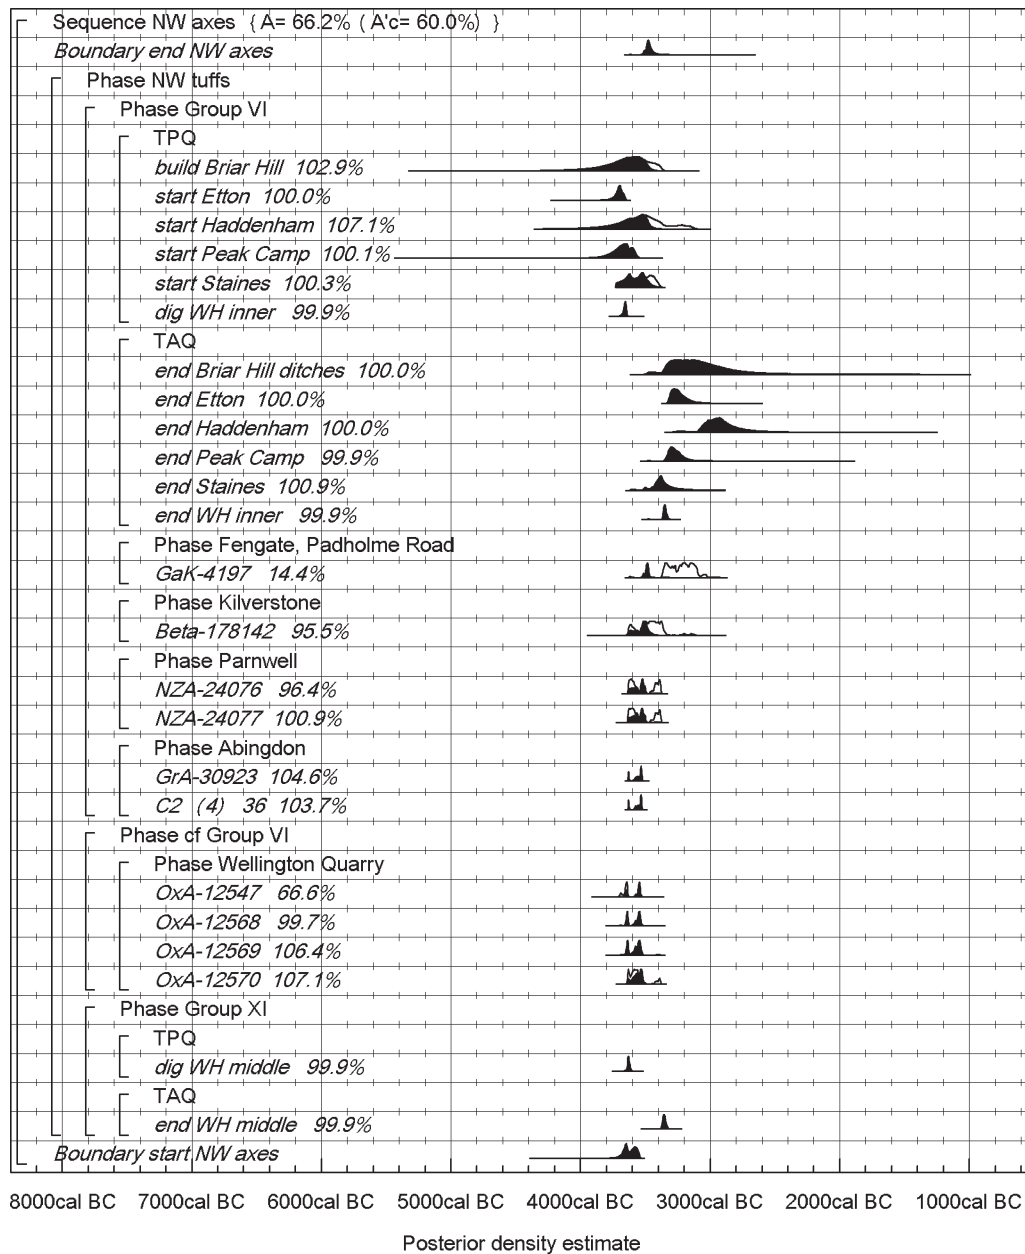 Sequence NW axes { A= 66.2% ( A'c= 60.0%) }
Boundary end NW axes
Phase NW tuffs
Phase Group VI
TPQ
build Briar Hill 102.9%
start Etton 100.0%
start Haddenham 107.1%
start Peak Camp 100.1%
start Staines 100.3%
dig WH inner 99.9%
TAQ
end Briar Hill ditches 100.0%
end Etton 100.0%
end Haddenham 100.0%
end Peak Camp 99.9%
end Staines 100.9%
end WH inner 99.9%
Phase Fengate, Padholme Road
GaK-4197 14.4%
Phase Kilverstone
Beta-178142 95.5%
Phase Parnwell
NZA-24076 96.4%
NZA-24077 100.9%
Phase Abingdon
GrA-30923 104.6%
C2 (4) 36 103.7%
Phase cf Group VI
Phase Wellington Quarry
OxA-12547 66.6%
OxA-12568 99.7%
OxA-12569 106.4%
OxA-12570 107.1%
Phase Group XI
TPQ
dig WH middle 99.9%
TAQ
end WH middle 99.9%
Boundary start NW axes
8000cal BC 7000cal BC 6000cal BC 5000cal BC 4000cal BC 3000cal BC 2000cal BC 1000cal BC
Posterior density estimate